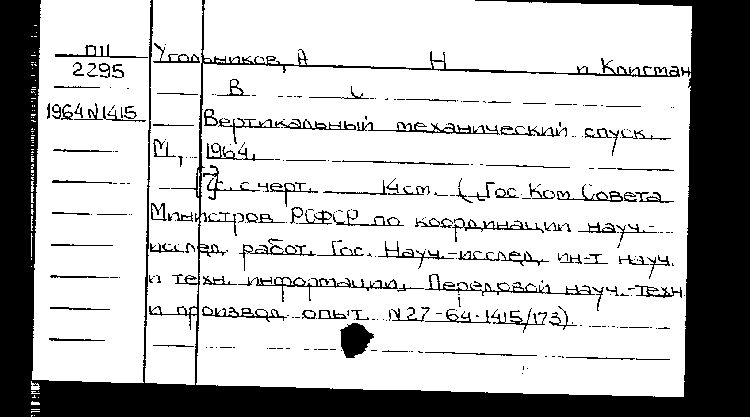 П11
2295
1964 N1415
Угольников, А Н и Клигман
В
Вертикальный механический спуск.
М, 1964.
[2]с. с черт. 14 ст. (Гос. Ком Совета
Министров РСФСР по координации науч.-
исслед. работ. Гос. Науч.-исслед. ин-т науч.
и техн. информации. Передовой науч.-техн
и производ. опыт. N27-64-1415/173).